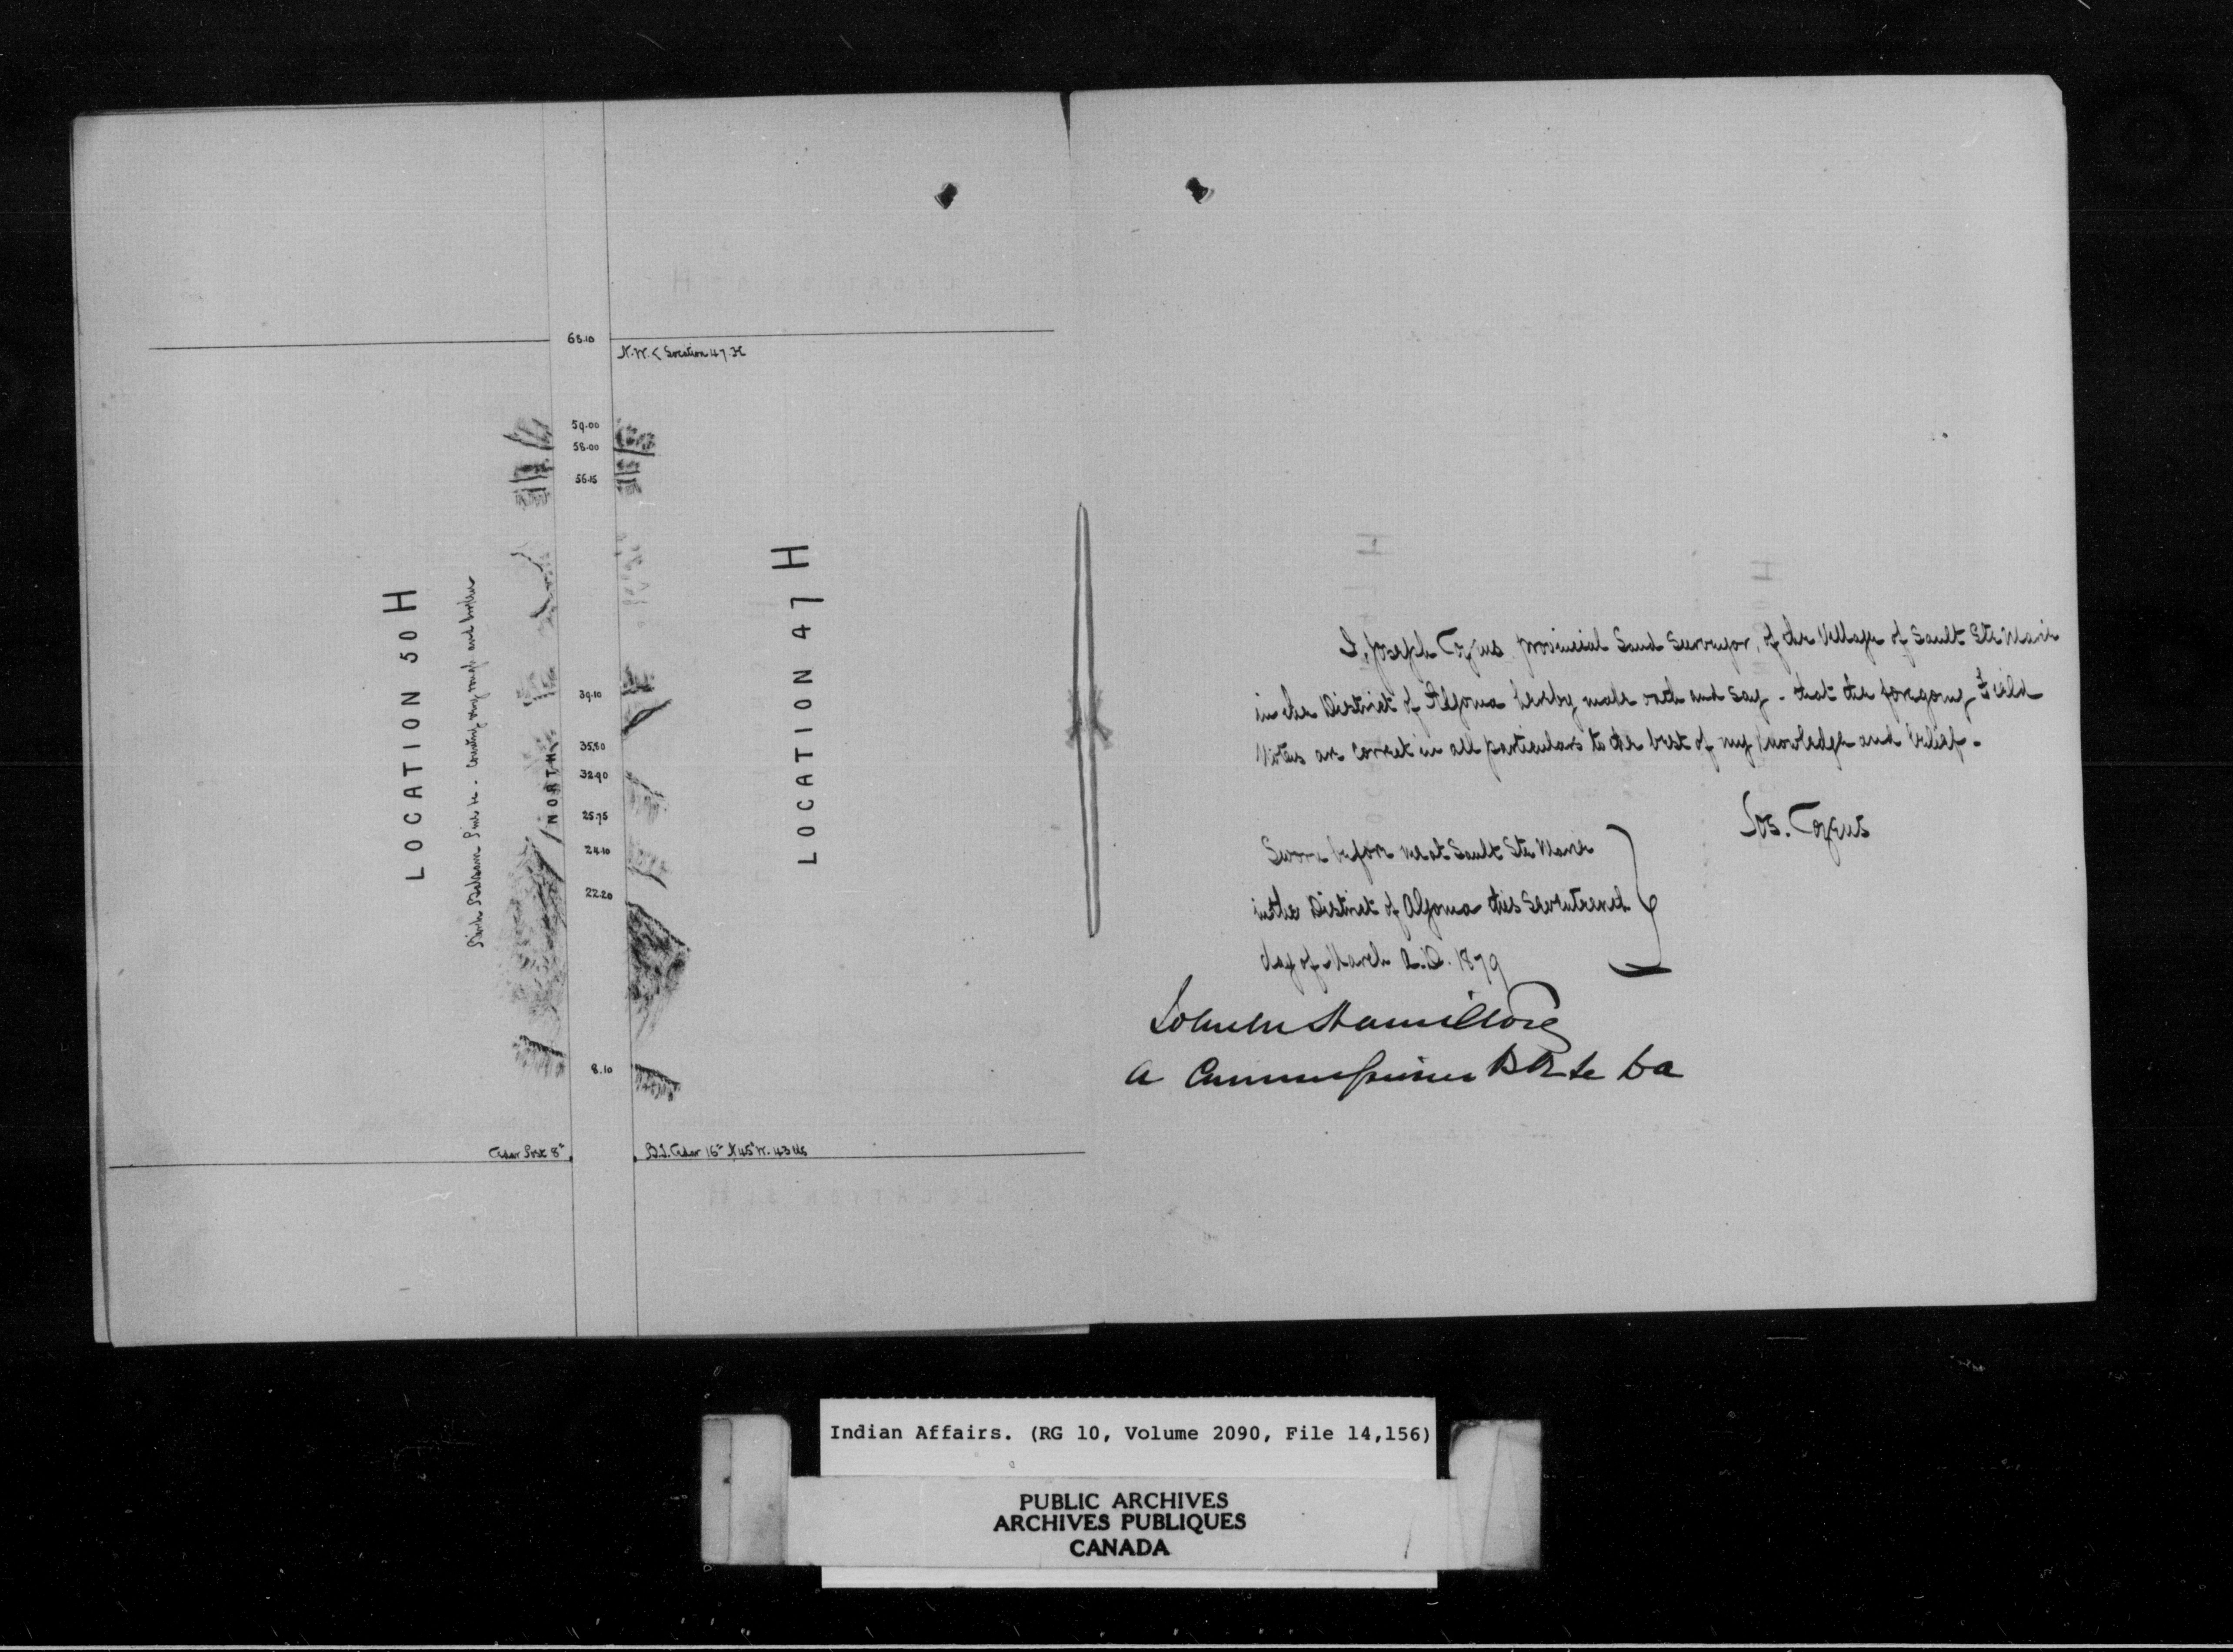 68.10
N.W. < Location 47. H
59.00
58.00
56.15
39.10
35.80
32.90
25.75
24.10
22.20
8.10
NORTH
LOCATION 50 H
Birch Balsam Pine &c - Country very rough and broken
LOCATION 47 H
Cedar Post 8"
B.T. Cedar 16" N45°W. 43 lks
I, Joseph Cozens provincial Land Surveyor, of the Village of Sault Ste Marie
in the District of Algoma hereby make oath and say - that the foregoing Field
Notes are correct in all particulars to the best of my knowledge and belief.
Jos. Cozens
Sworn before me at Sault Ste Marie
in the District of Algoma this Seventeenth
day of March A.D. 1879
Hamilton
a Commissioner &c
Indian Affairs. (RG 10, Volume 2090, File 14,156)
PUBLIC ARCHIVES
ARCHIVES PUBLIQUES
CANADA